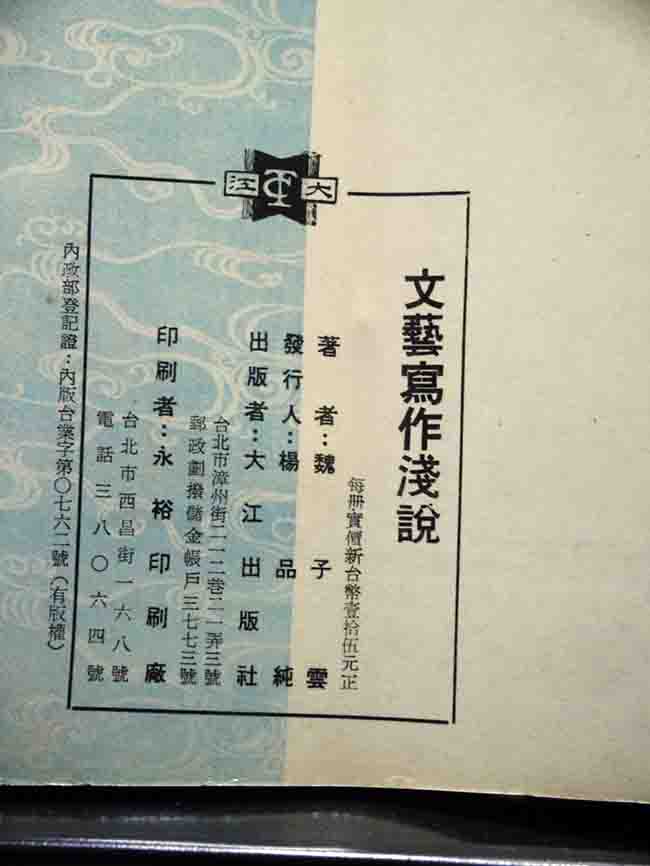 大江
文藝寫作淺說
每冊實價新台幣壹拾伍元正
著者：魏子雲
發行人：楊品純
出版者：大江出版社
台北市漳州街二一二巷二一弄三號
郵政劃撥儲金帳戶三七七三號
印刷者：永裕印刷廠
台北市西昌街一六八號
電話三八〇六四號
內政部登記證：內版台業字第〇七六二號（有版權）